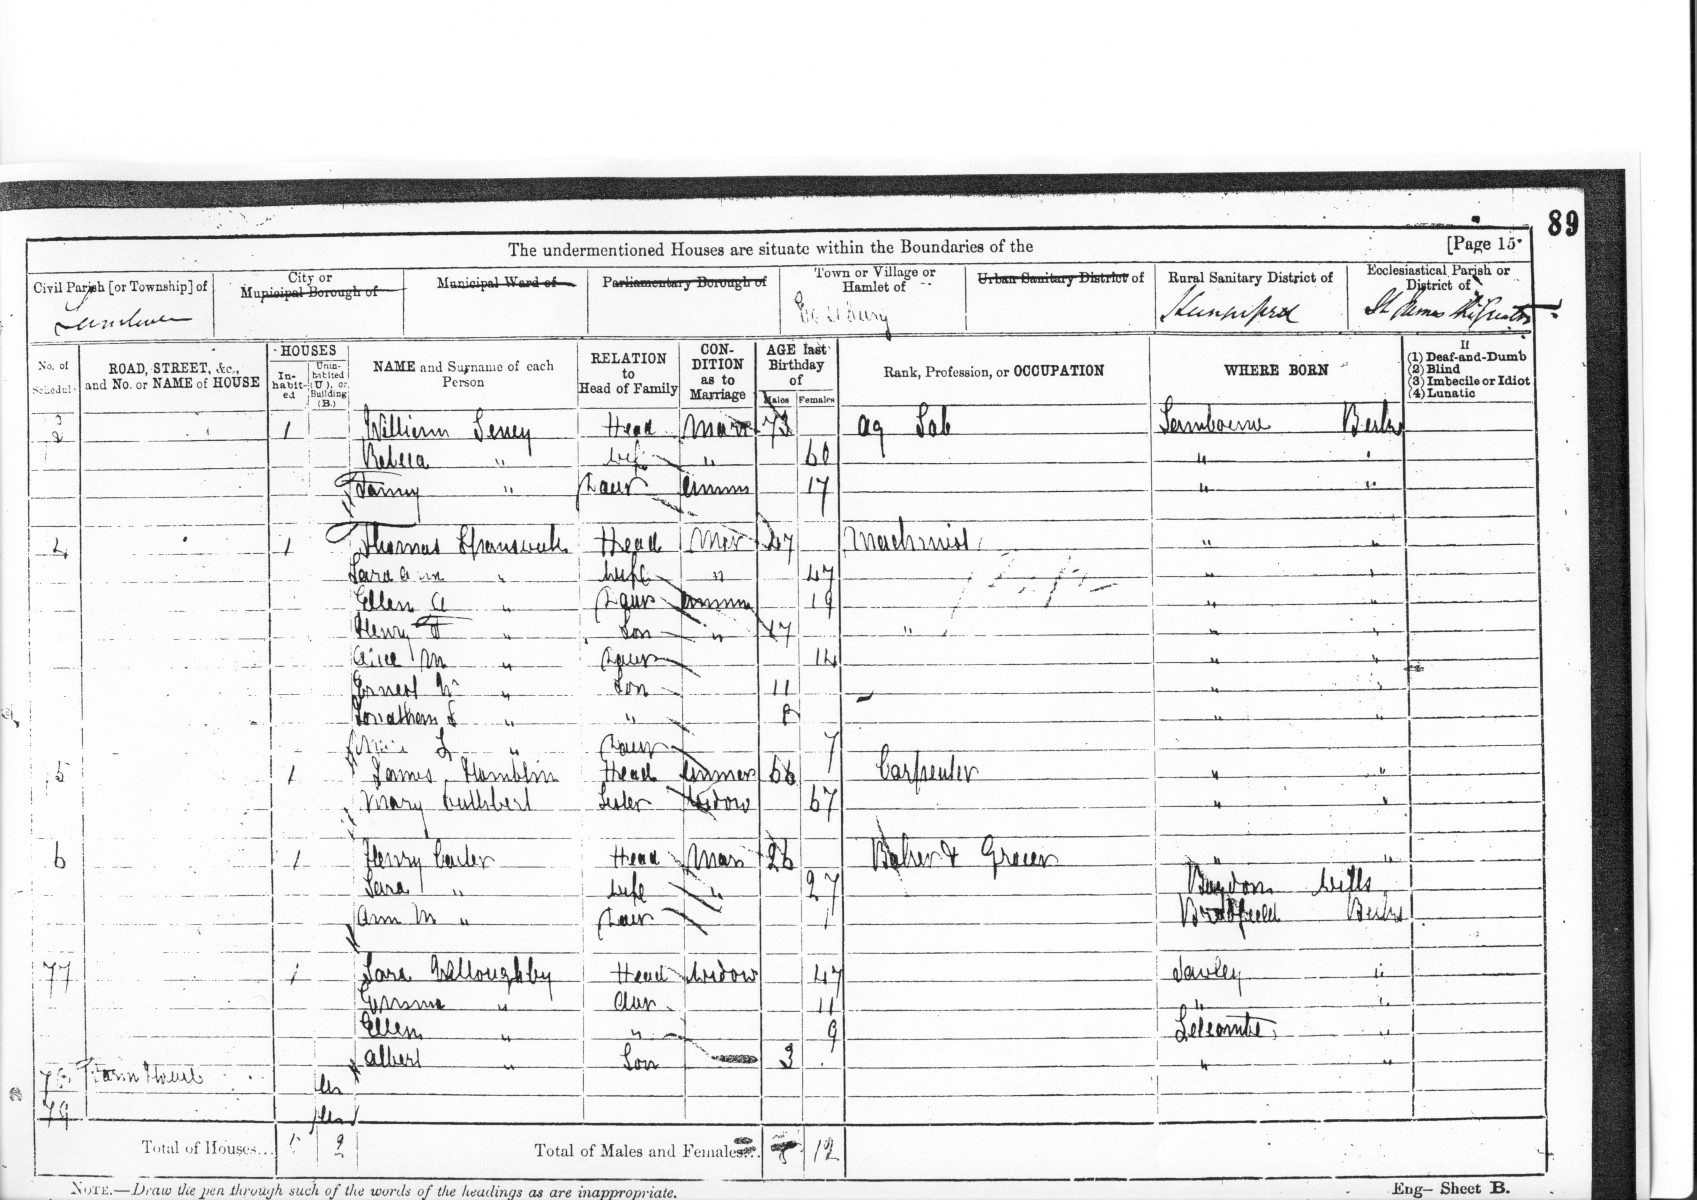 89
The undermentioned Houses are situate within the Boundaries of the [Page 15
Civil Parish [or Township] of City or Municipal Borough of Municipal Ward of Parliamentary Borough of Town or Village or Hamlet of Urban Sanitary District of Rural Sanitary District of Ecclesiastical Parish or District of
St James
No. of Schedule ROAD, STREET, &c., and No. or NAME of HOUSE HOUSES Inhabited Uninhabited (U), or Building (B.) NAME and Surname of each Person RELATION to Head of Family CONDITION as to Marriage AGE last Birthday of Males Females Rank, Profession, or OCCUPATION WHERE BORN If (1) Deaf-and-Dumb (2) Blind (3) Imbecile or Idiot (4) Lunatic
1 William Head Mar 73 Ag Lab Berks
" wife " 60 " "
Fanny " Daur Unm 17 " "
4 1 Thomas Head Mar 47 Machinist " "
Sara Ann " Wife " 47 " "
Ellen A " Daur 19 " "
Henry " Son " 17 " " "
Alice M " Daur 14 " "
Ernest W " Son 11 " "
Jonathan " " 8 " "
" Daur 7
5 1 James Hamblin Head 66 Carpenter " "
Mary Cuthbert Sister Widow 67 " "
6 1 Henry Carter Head Mar 26 Baker & Grocer " "
Sara " Wife " 27 Wilts
Ann M " Daur 1 Bradfield Berks
77 1 Sara Willoughby Head Widow 47 "
Emma " Daur 11 " "
Ellen " " 9 Letcombe "
Albert " Son 3 " "
78 Farm House Un
79 Un
Total of Houses... 5 2 Total of Males and Females... 12
NOTE.—Draw the pen through such of the words of the headings as are inappropriate.
Eng- Sheet B.